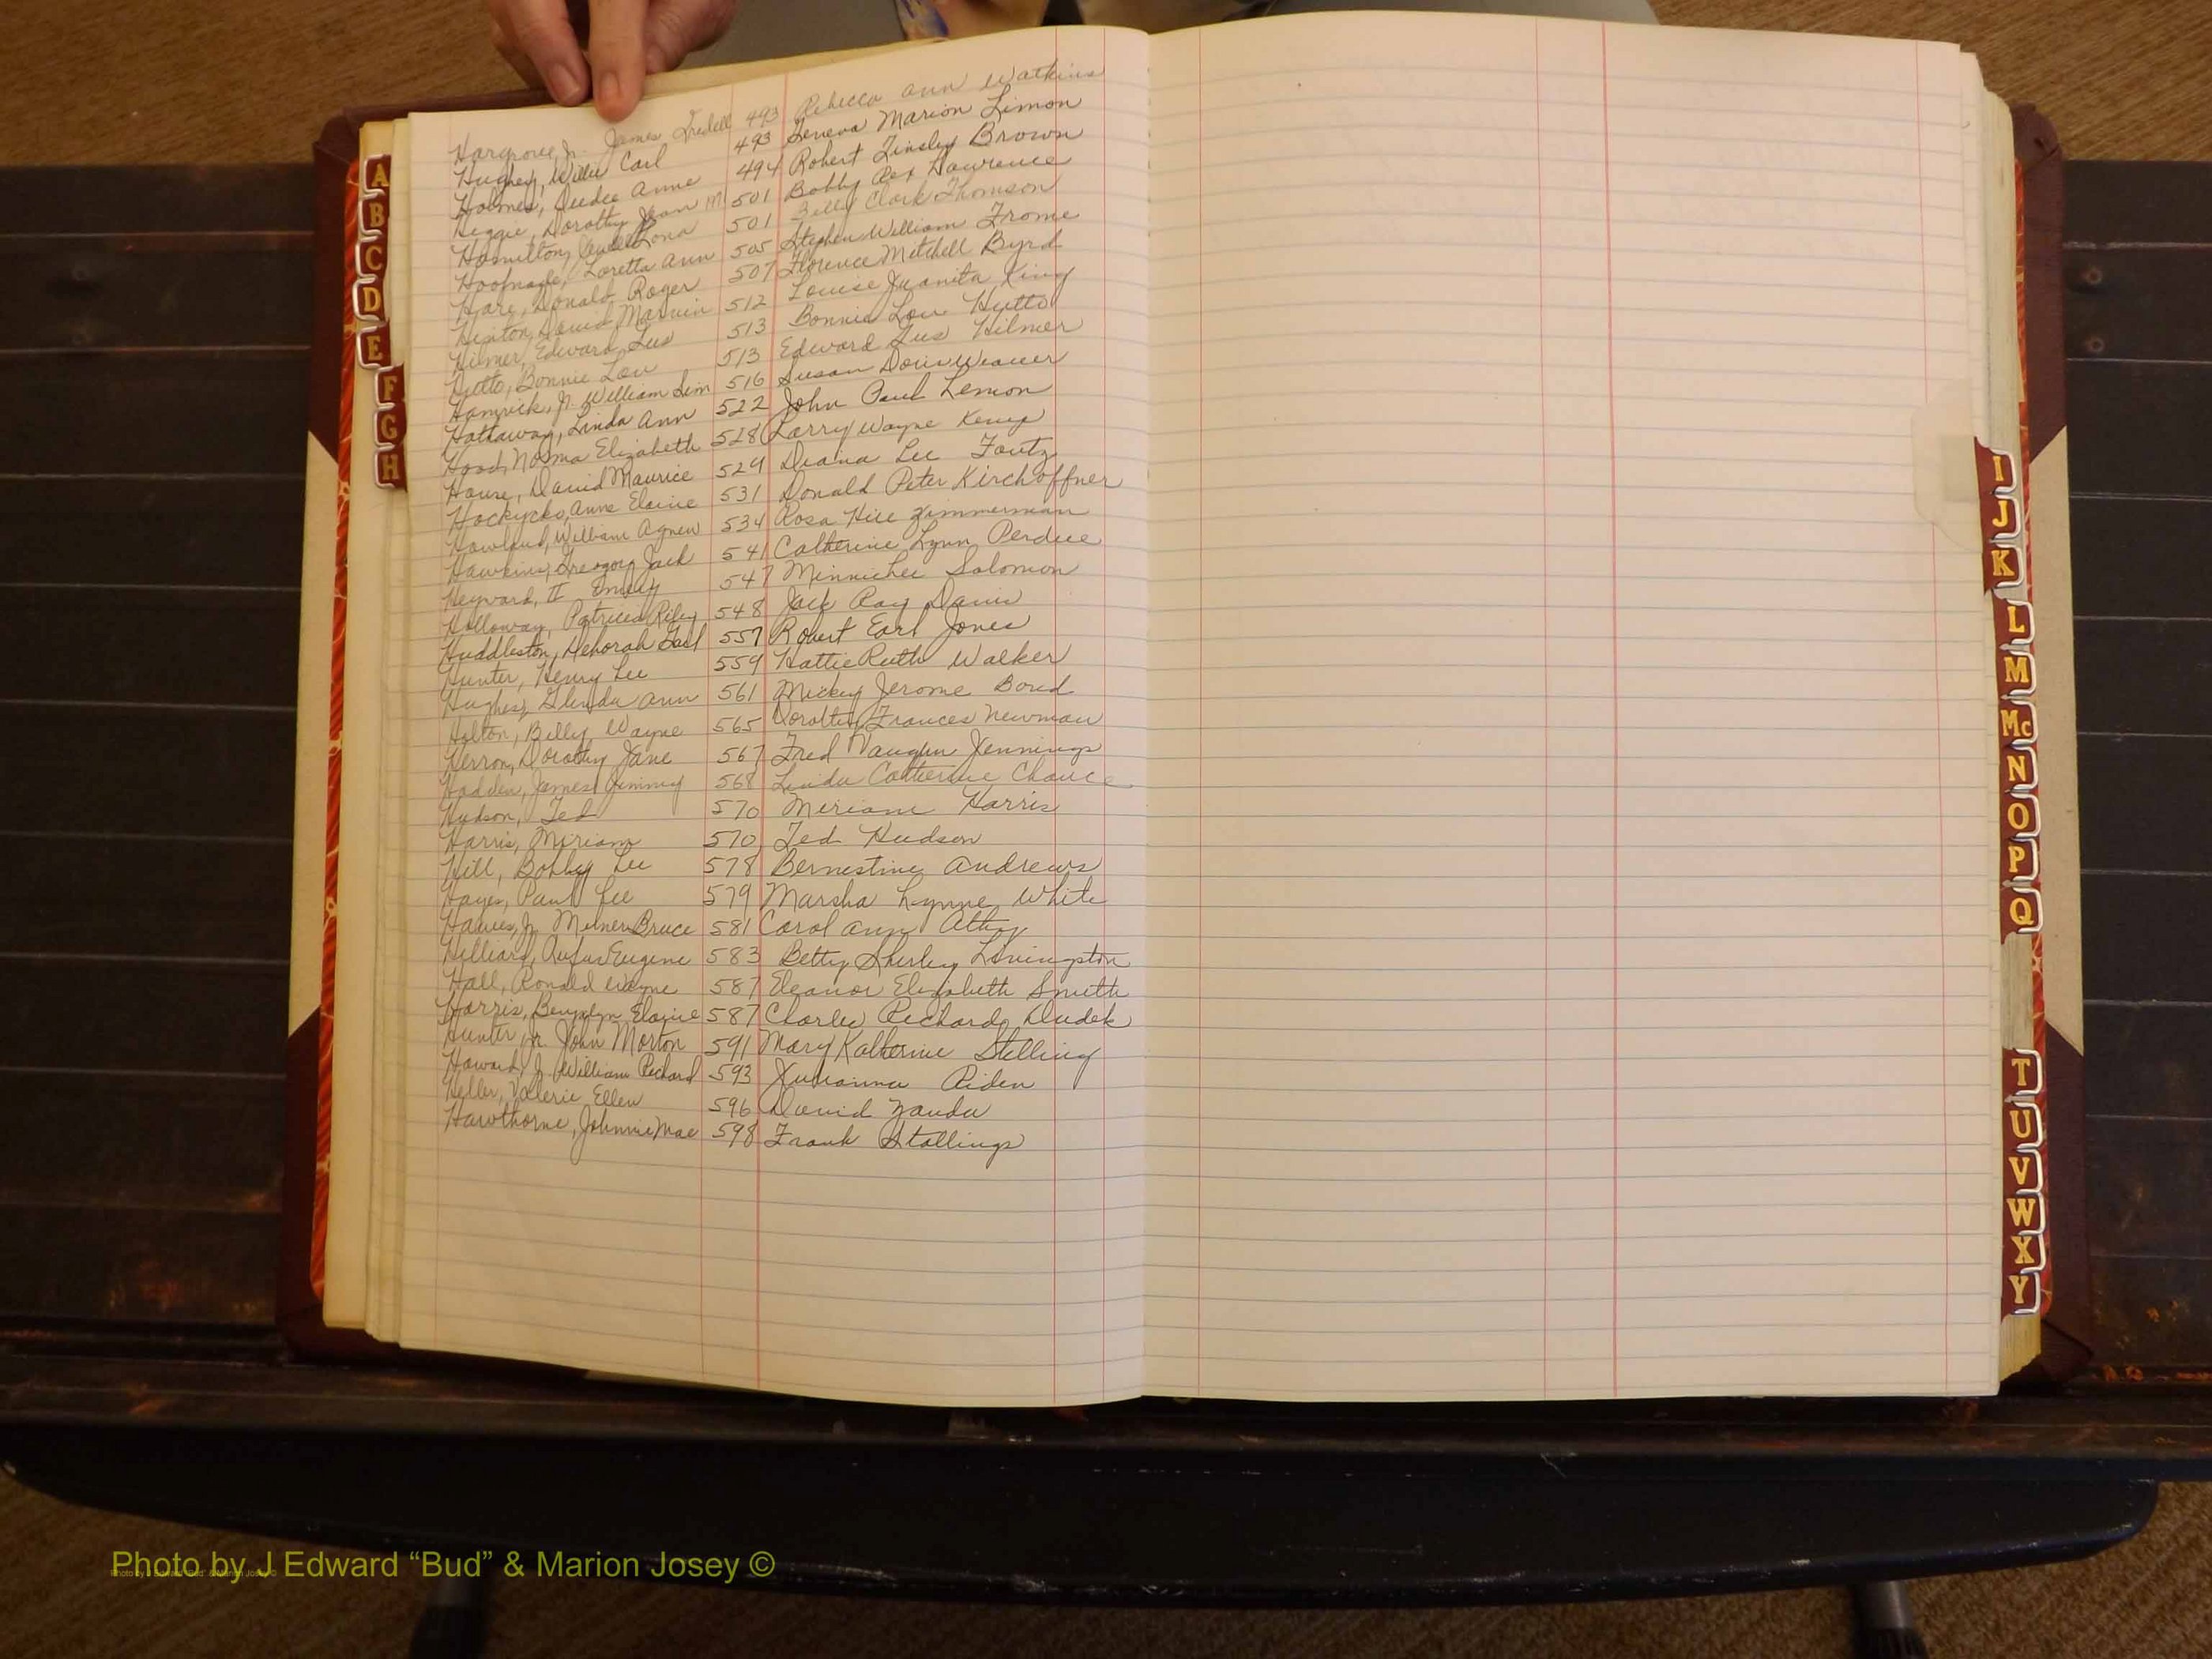 Hargrove, Jr. James Iredell 493 Rebecca Ann Watkins
Hughey, Willie Carl 493 Geneva Marion Limon
Holmes, Deedee Anne 494 Robert Tinsley Brown
Heggie, Dorothy Jean M 501 Bobby Rex Lawrence
Hamilton, Lona 501 Billy Clark Thomson
Loretta Ann 505 Stephen William Frome
Hare, Donald Roger 507 Florence Mitchell Byrd
Hinton, David Marvin 512 Louise Juanita King
Hilmer, Edward Lus 513 Bonnie Lou Hutto
Hutto, Bonnie Lou 513 Edward Lus Hilmer
Hamrick, Jr. William Sim 516 Susan Doris Weaver
Hathaway, Linda Ann 522 John Paul Lemon
Hood, Norma Elizabeth 528 Larry Wayne Kemp
House, David Maurice 529 Diana Lee Foutz
Hockycko, Anne Elaine 531 Donald Peter Kirchoffner
William Agnew 534 Rosa Hill Zimmerman
Hawkins, Gregory Jack 541 Catherine Lynn Perdue
Heyward, II Emily 547 Minnie Lee Solomon
Holloway, Patricia Riley 548 Jack Ray Davis
Huddleston, Deborah Gail 557 Robert Earl Jones
Hunter, Henry Lee 559 Hattie Ruth Walker
Hughes, Glenda Ann 561 Mickey Jerome Boud
Holton, Billy Wayne 565 Dorothy Frances Newman
Herron, Dorothy Jane 567 Fred Vaughn Jennings
Hadden, James Jimmy 568 Linda Catherine Chance
Hudson, Ted 570 Meriam Harris
Harris, Miriam 570 Ted Hudson
Hill, Bobby Lee 578 Bernestine Andrews
Hayes, Paul Lee 579 Marsha Lynne White
Jr. Milner Bruce 581 Carol Ann
Hilliard, Rufus Eugene 583 Betty Shirley Livingston
Hall, Ronald Wayne 587 Eleanor Elizabeth Smith
Harris, Elaine 587 Charles Richard Dudek
Hunter, Jr. John Morton 591 Mary Katherine Stelling
Howard, Jr. William Richard 593 Julianna Riden
Heller, Valerie Ellen 596 David Zauda
Hawthorne, Johnnie Mae 598 Frank Stallings
A
B
C
D
E
F
G
H
I
J
K
L
M
Mc
N
O
P
Q
T
U
V
W
X
Y
Photo by J Edward “Bud” & Marion Josey ©
Photo by J Edward “Bud” & Marion Josey ©